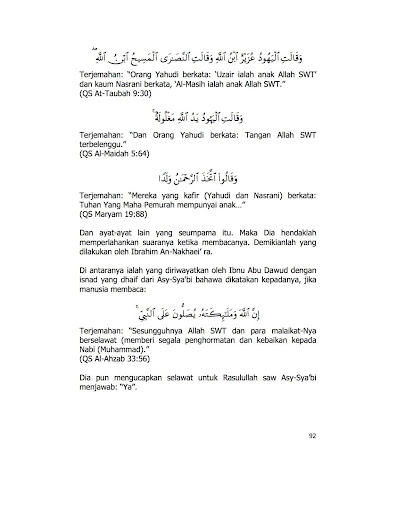 وَقَالَتِ ٱلْيَهُودُ عُزَيْرٌ ٱبْنُ ٱللَّهِ وَقَالَتِ ٱلنَّصَٰرَى ٱلْمَسِيحُ ٱبْنُ ٱللَّهِ ۖ
Terjemahan: “Orang Yahudi berkata: ‘Uzair ialah anak Allah SWT’
dan kaum Nasrani berkata, ‘Al-Masih ialah anak Allah SWT.”
(QS At-Taubah 9:30)
وَقَالَتِ ٱلْيَهُودُ يَدُ ٱللَّهِ مَغْلُولَةٌ ۚ
Terjemahan: “Dan Orang Yahudi berkata: Tangan Allah SWT
terbelenggu.”
(QS Al-Maidah 5:64)
وَقَالُوا۟ ٱتَّخَذَ ٱلرَّحْمَٰنُ وَلَدًا
Terjemahan: “Mereka yang kafir (Yahudi dan Nasrani) berkata:
Tuhan Yang Maha Pemurah mempunyai anak…”
(QS Maryam 19:88)
Dan ayat-ayat lain yang seumpama itu. Maka Dia hendaklah
memperlahankan suaranya ketika membacanya. Demikianlah yang
dilakukan oleh Ibrahim An-Nakhaei’ ra.
Di antaranya ialah yang diriwayatkan oleh Ibnu Abu Dawud dengan
isnad yang dhaif dari Asy-Sya’bi bahawa dikatakan kepadanya, jika
manusia membaca:
إِنَّ ٱللَّهَ وَمَلَٰٓئِكَتَهُۥ يُصَلُّونَ عَلَى ٱلنَّبِىِّ ۚ
Terjemahan: “Sesungguhnya Allah SWT dan para malaikat-Nya
berselawat (memberi segala penghormatan dan kebaikan kepada
Nabi (Muhammad).”
(QS Al-Ahzab 33:56)
Dia pun mengucapkan selawat untuk Rasulullah saw Asy-Sya’bi
menjawab: “Ya”.
92